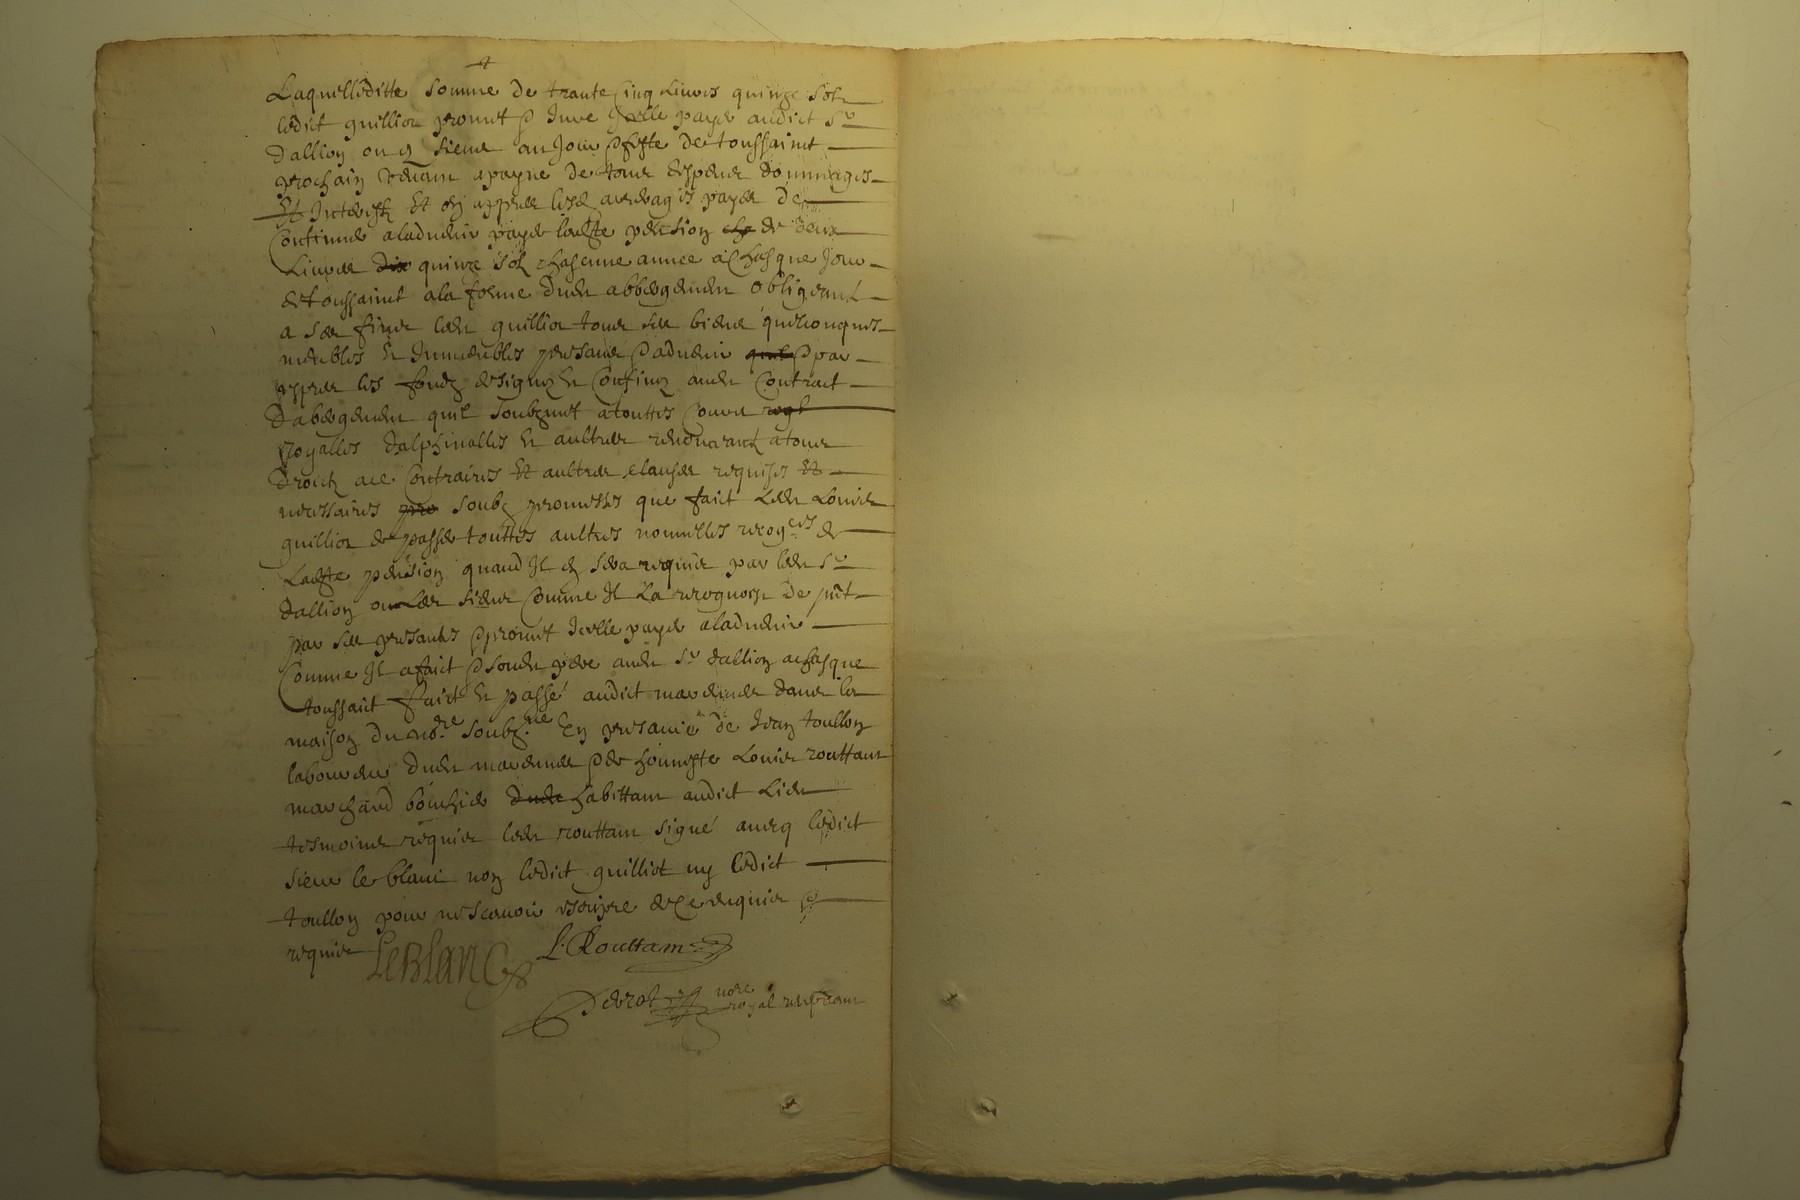 Laquelleditte somme de trante cinq livres quinze solz
ledict guillion promet et jure icelle payer audict Sr
dallion ou siens au jour et feste de toussainct
prochain venant apayne de tous despens dommages
Et interestz Et apprès arrerages payer de
Continuer aladvenir payer laditte pension de deux
Livres quinze solz chascune année achasque jour
de toussainct ala forme dudit abbergement obligeant
a ses fins ledit guillion tous ses biens quelconques
meubles et immeubles presants et advenir et par
exprès les fondz designez et confinez audit Contract
dabergement quil soubzmet atouttes cours
Royalles dalphinalles et aultres renonceant atous
droictz ace Contraires Et aultres clauses requises Et
necessaires soubz promesses que faict ledit Louis
guillion de passer touttes aultres nouvelles recog.ces de
Laditte pension quand Il en sera requis par ledit Sr
dallion ou Les siens Comme Il La recognoist de pnt
par ses presantes et promet Icelle payer aladvenir
Comme Il a faict et son dit père audit Sr dallion achasque
toussaict faict et passé audict dans la
maison du no.re soubz.né En presance de Jean toullon
laboureur dudit et de honneste Louis routtam
marchand bouchier habittam audict Lieu
tesmoins requis ledit routtam signé avecq ledict
sieur le blanc non ledict guilliot ny ledict
toullon pour ne scavoir escripre de ce enquis et
requis LeBlanc L. Routtam
Perrot no.re
royal